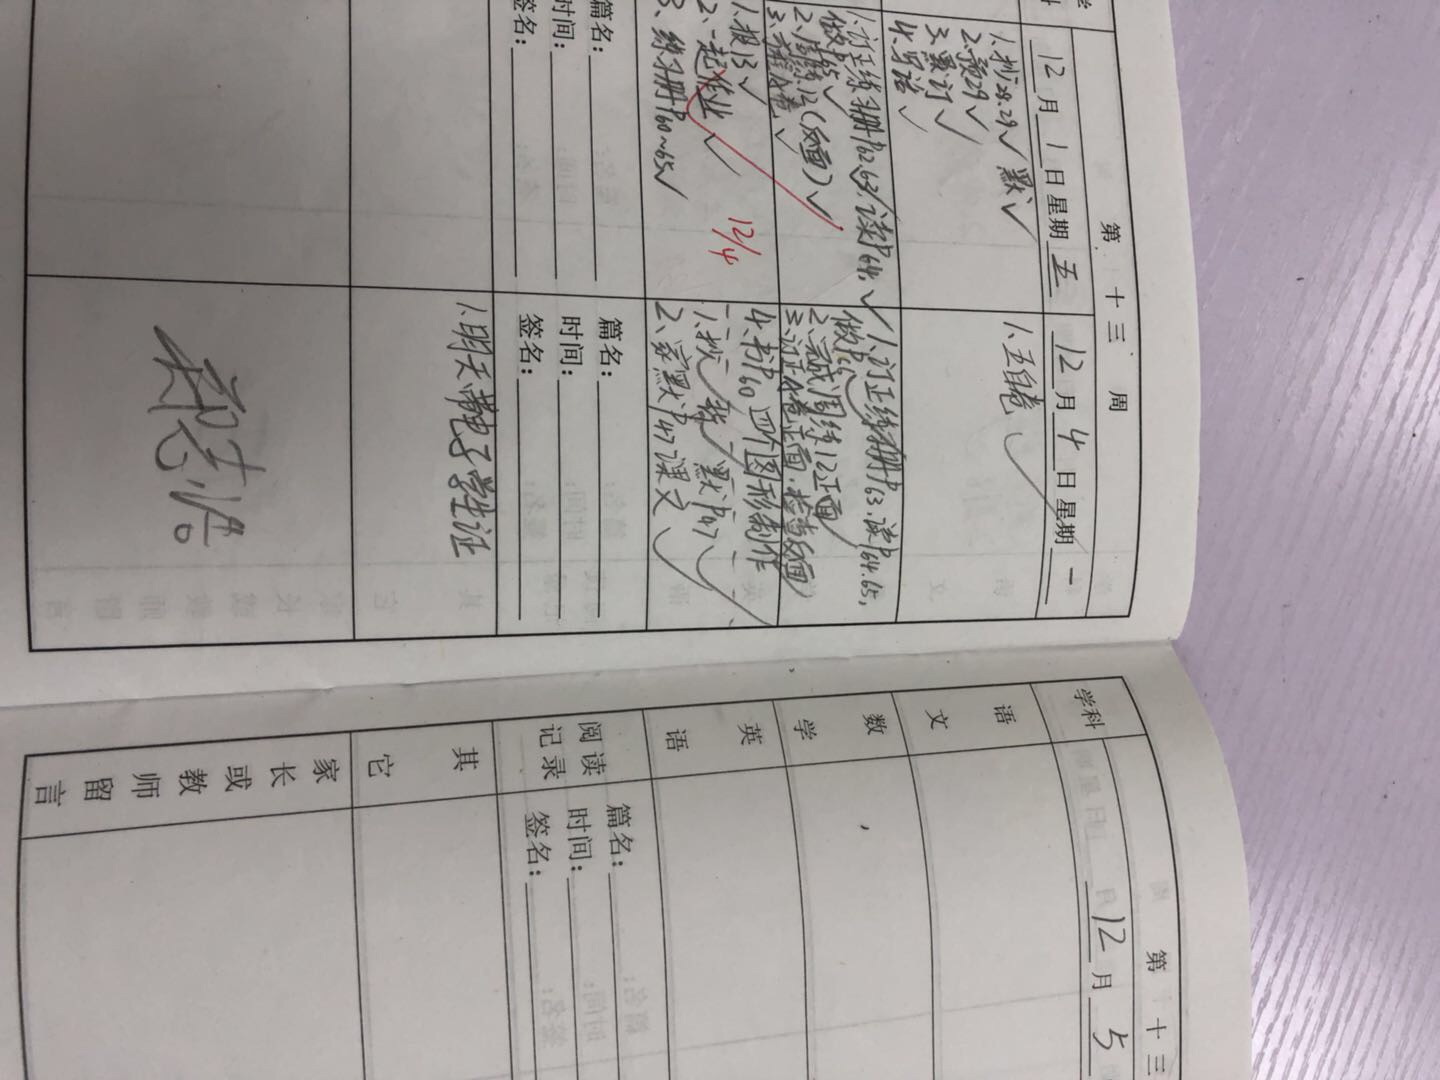 第十三周
12月1日星期五
12月4日星期一
1.抄28.29√ 默√
2.预29√
3.默订√
4.写话√
1.五自卷√
1.订正练习册P62.63,读P64.√
做P65√
2.周练12(反面)√
1.订正练习册P63.读P64.65,
做P66
2.完成周练12正面
3.订正A卷正面.检查反面
4.书P60 四个图形制作
1.报13√
2.一起作业√
3.练习册P60~65√
12/4
1.抄 默P47√
2.家默P47课文√
篇名:
时间:
签名:
篇名:
时间:
签名:
1.明天带电子学生证
第十三
学科
12月5
语文
数学
英语
阅读记录
篇名:
时间:
签名:
其它
家长或教师留言